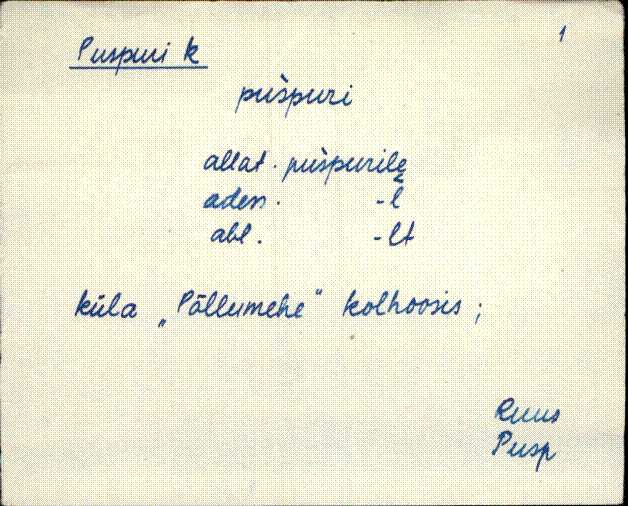 1
Puspuri k
pùspuri
allat. pùspurilę
adess. -l
abl. -lt
küla „Põllumehe" kolhoosis;
Ruus
Pusp